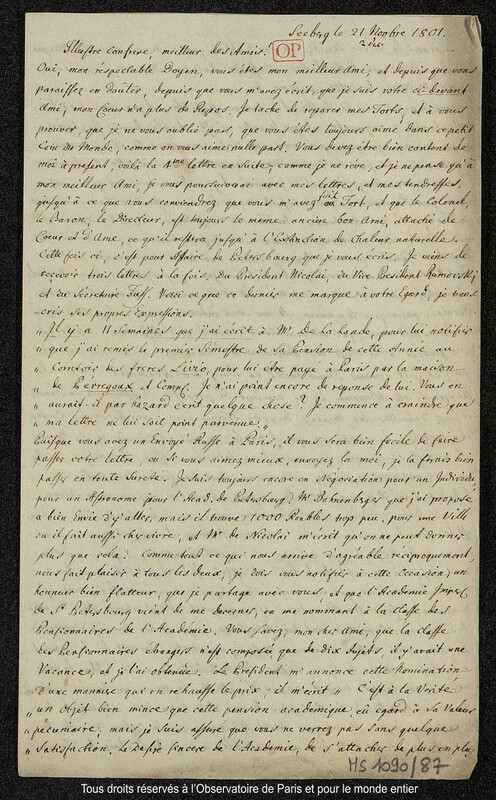 Seeberg le 21 Novbre 1801.
OP
Illustre Confrere, meilleur des Amis.
Oui, mon respectable Doyen, vous êtes mon meilleur Ami, et depuis que vous
paraissez en douter, depuis que vous m'avez écrit, que je suis votre ci-devant
Ami, mon Coeur n'a plus de Repos. Je tache de reparer mes Torts, et à vous
prouver, que je ne vous oublie pas, que vous êtes toujours aimé dans ce petit
Coin du Monde, comme on vous aime nulle part. Vous devez être bien content de
moi à présent, voilà la 4me lettre en suite, comme je ne rêve, et je ne pense qu'à
mon meilleur Ami, je vous poursuiverai avec mes lettres, et mes tendresses,
jusqu'à ce que vous conviendrez que vous m'avez fait Tort, et que le Colonel,
le Baron, le Directeur, est toujours le meme ancien bon Ami, attaché de
Coeur et d'Ame, ce qu'il restera jusqu'à l'Extinction de Chaleur naturelle.
Cette fois ci, c'est pour affaire de Petersbourg que je vous écris. Je viens de
recevoir trois lettres à la fois. Du President Nicolai, du Vice President Rumovski
et du Sécretaire Fuss. Voici ce que ce dernier me marque à votre Egard, je trans-
cris ses propres Expressions.
„ Il y a 11 Semaines que j'ai écrit à Mr De la Lande, pour lui notifier
„ que j'ai remis le premier Sémestre de sa Pension de cette Année au
„ Comtoir des freres Livio, pour lui être payé à Paris par la maison
„ de Perregaux et Comp. Je n'ai point encore de réponse de lui. Vous en
„ aurait-il par hazard écrit quelque chose? Je commence à craindre que
„ ma lettre ne lui soit point parvenue."
Puisque vous avez un Envoyé Russe à Paris, il vous sera bien facile de faire
passer votre lettre, ou si vous aimez mieux, envoyez la moi, je la ferais bien
passer en toute Sureté. Je suis toujours encore en Négociation pour un Individu
pour un Astronome pour l'Acad. de Petersbourg. Mr Bohnenberger que j'ai proposé
a bien Envie d'y aller, mais il trouve 1000 Roubles trop peu, pour une Ville
où il fait aussi cher vivre, et Mr de Nicolai m'écrit qu'on ne peut donner
plus que cela. Comme tout ce qui nous arrive d'agréable réciproquement,
nous fait plaisir à tous les deux, je dois vous notifier à cette Occasion, un
honneur bien flatteur, que je partage avec vous, et que l'Academie Imper.
de St Petersbourg vient de me decerner, en me nommant à la classe des
Pensionnaires de l'Academie. Vous savez, mon cher Ami, que la classe
des Pensionnaires étrangers n'est composée que de dix Sujets, il y avait une
Vacance, et je l'ai obtenue. Le President m'annonce cette Nomination
d'une manière qui en rehausse le prix, il m'écrit „ C'est à la Verité
„ un Objet bien mince que cette pension academique, eû egard à sa Valeur
„ pécuniaire, mais je suis assuré que vous ne verrez pas sans quelque
„ Satisfaction, le Desir sincere de l'Academie, de s'attacher de plus en plus
MS 1090/87
Tous droits réservés à l'Observatoire de Paris et pour le monde entier